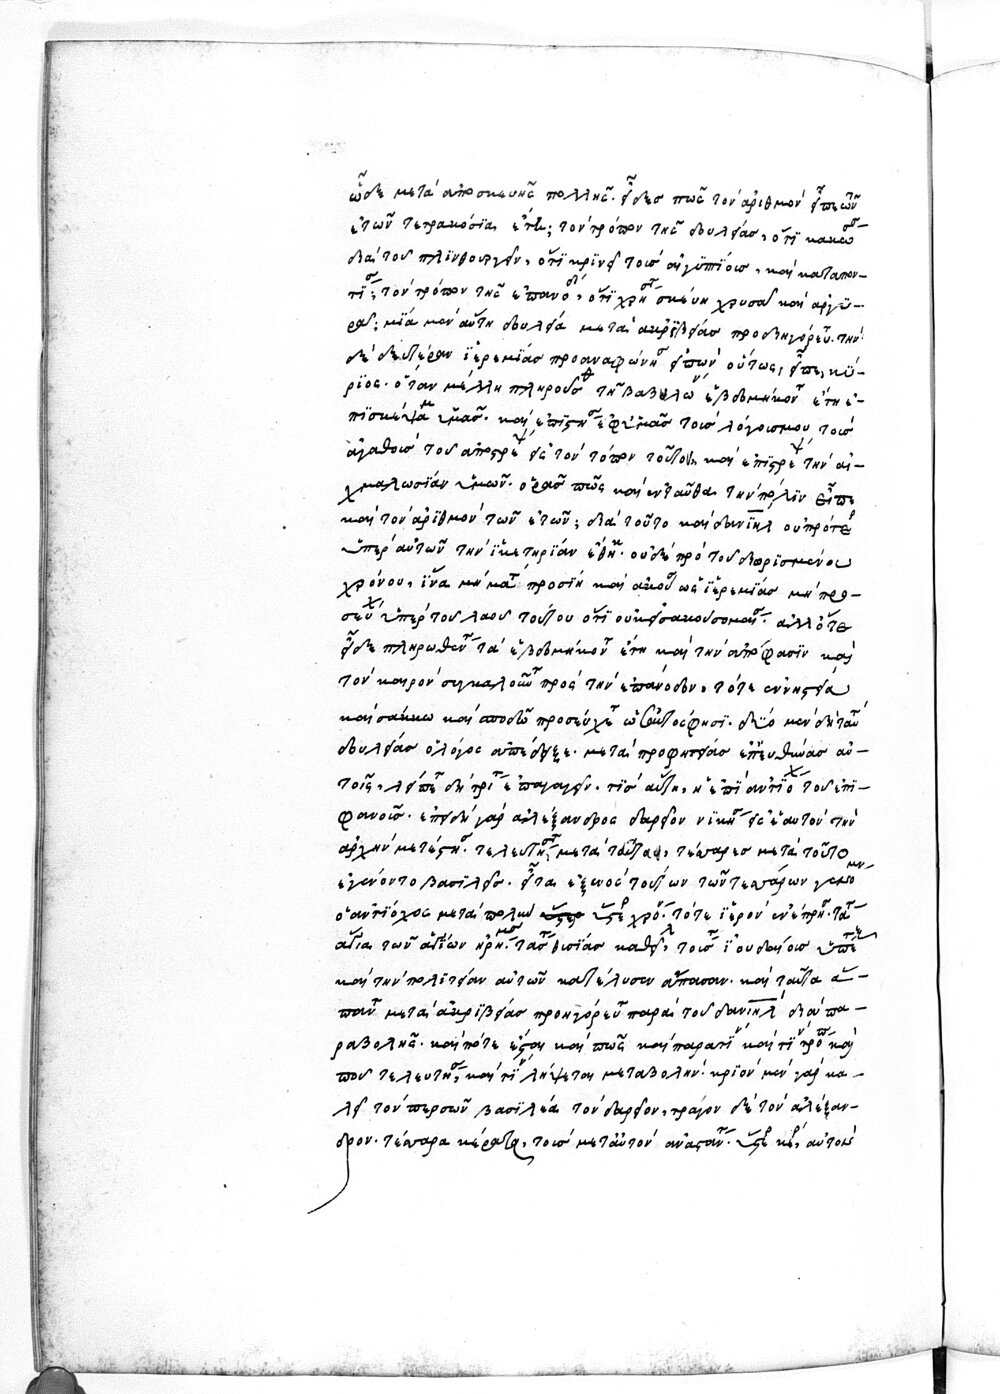 ὧδε μετὰ ἀποσκευῆς πολλῆς. εἶδες πῶς τὸν ἀριθμὸν εἶπε τῶν
ἐτῶν τετρακόσια ἔτη; τὸν τρόπον τῆς δουλείας, ὅτι κακῶσ
διὰ τοῦ πλινθουργεῖν, ὅτι κρινεῖ τοὺσ αἰγυπτίους, καὶ καταπον-
τίσ; τὸν τρόπον τῆς ἐπανόδ, ὅτι χρησ σκεύη χρυσᾶ καὶ ἀργυ-
ρᾶ; μία μὲν αὕτη δουλεία μετὰ ἀκριβείασ προδιηγόρευτ. τὴν
δὲ δευτέραν ἱερεμίασ προαναφωνήσ εἰπὼν οὕτως, εἶπε κύ-
ριος. ὅταν μέλλη πληροῦσθ τῆ βαβυλῶν ἑβδομήκοντ ἔτη ἐ-
πισκέψομ ὑμᾶσ. καὶ ἐπιστήσ ἐφ ὑμᾶσ τοὺσ λόγουσ μου τοὺσ
ἀγαθοὺσ τοῦ ἀποστρέψ εἰς τὸν τόπον τοῦτον, καὶ ἐπιστρέψ τὴν αἰ-
χμαλωσίαν ὑμῶν. ὁρᾶσ πῶς καὶ ἐνταῦθα τὴν πόλιν εἶπε
καὶ τὸν ἀριθμὸν τῶν ἐτῶν; διὰ τοῦτο καὶ δανιὴλ οὐ πρότερ
ὑπὲρ αὐτῶν τὴν ἱκετηρίαν ἔθηκ. οὐδὲ πρὸ τοῦ διωρισμένου
χρόνου, ἵνα μὴ μάτ προσίη καὶ ἀκούσ ὡς ἱερεμίασ μὴ προ-
σεύχ ὑπὲρ τοῦ λαοῦ τούτου ὅτι οὐκ εἰσακούσομαί σ. ἀλλ ὅτε
εἶδε πληρωθέντ τὰ ἑβδομήκοντ ἔτη καὶ τὴν ἀπόφασιν καὶ
τὸν καιρὸν συγκαλοῦντ πρὸς τὴν ἐπάνοδον, τότε ἐν νηστεία
καὶ σάκκω καὶ σποδῶ προσεύχετ ὡς αὐτός φησι. δύο μὲν δὴ ταύτ
δουλείας ὁ λόγος ἀπέδειξε. μετὰ προφητείασ ἐπενεχθείσασ αὐ-
τοῖς, λείπετ δὴ τρίτ ἐπαγαγεῖν. τίσ αὕτη, ἡ ἐπὶ ἀντιόχ τοῦ ἐπι-
φανοῦσ. ἐπειδὴ γὰρ ἀλέξανδρος δαρεῖον νικήσ εἰς ἑαυτὸν τὴν
ἀρχὴν μετέστησ. τελευτήσ, μετὰ ταῦτα, τέσσαρεσ μετὰ τοῦτο
ἐγένοντο βασιλεῖσ. εἶτα ἐξ ἑνὸς τούτων τῶν τεσσάρων γενόμεν
ὁ ἀντίοχος μετὰ πολὺν ὕστερ χρό. τό τε ἱερὸν ἐνέπρησ. τὰ
ἅγια τῶν ἁγίων ἠρήμωσ. τὰσ θυσίασ καθεῖλ, τοὺσ ἰουδαίουσ ὑπέτ
καὶ τὴν πολιτείαν αὐτῶν κατέλυσεν ἅπασαν. καὶ ταῦτα ἅ-
παντ μετὰ ἀκριβείασ προηγόρευτ παρὰ τοῦ δανιὴλ διὰ πα-
ραβολῆς. καὶ πότε ἔσται καὶ πῶς καὶ παρὰ τίν καὶ τίν τρόπ καὶ
ποῦ τελευτήσ, καὶ τίν λήψεται μεταβολήν. κριὸν μὲν γὰρ κα-
λεῖ τὸν περσῶν βασιλέα τὸν δαρεῖον, τράγον δὲ τὸν ἀλέξαν-
δρον. τέσσαρα κέρατα, τοὺσ μετ αὐτὸν ἀναστάντ. ὕστερ κέρ, αὐτὸν